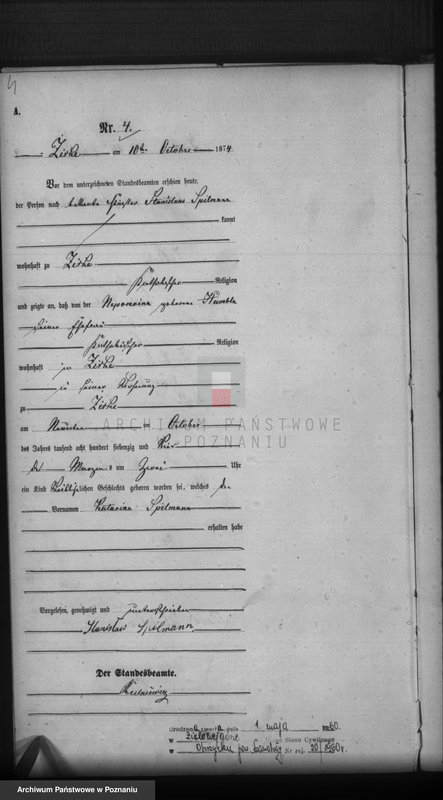 4
A.
Nr. 4.
Zirke am 10ten October 1874
Vor dem unterzeichneten Standesbeamten erschien heute,
der Person nach bekannte Stanislaus Spilmann
kannt
wohnhaft zu Zirke
Katholischer Religion
und zeigte an, daß von der Nepomucina geborene
seiner Ehefrau
Katholischer Religion
wohnhaft in Zirke
in seiner Wohnung
zu Zirke
am Neunten October
des Jahres tausend acht hundert siebenzig und vier
des Morgens um Zwei Uhr
ein Kind weiblichen Geschlechts geboren worden sei, welches den
Vornamen Katarina Spilmann
erhalten habe
Vorgelesen, genehmigt und unterschrieben
Stanisław Spilmann
Der Standesbeamte.
dnia 1. maja 1960.
w Zielonejgórze Stanu Cywilnego
w Obrzycku pow. Nr rej. 20/1960r.
ARCHIWUM PAŃSTWOWE
POZNANIU
Archiwum Państwowe w Poznaniu